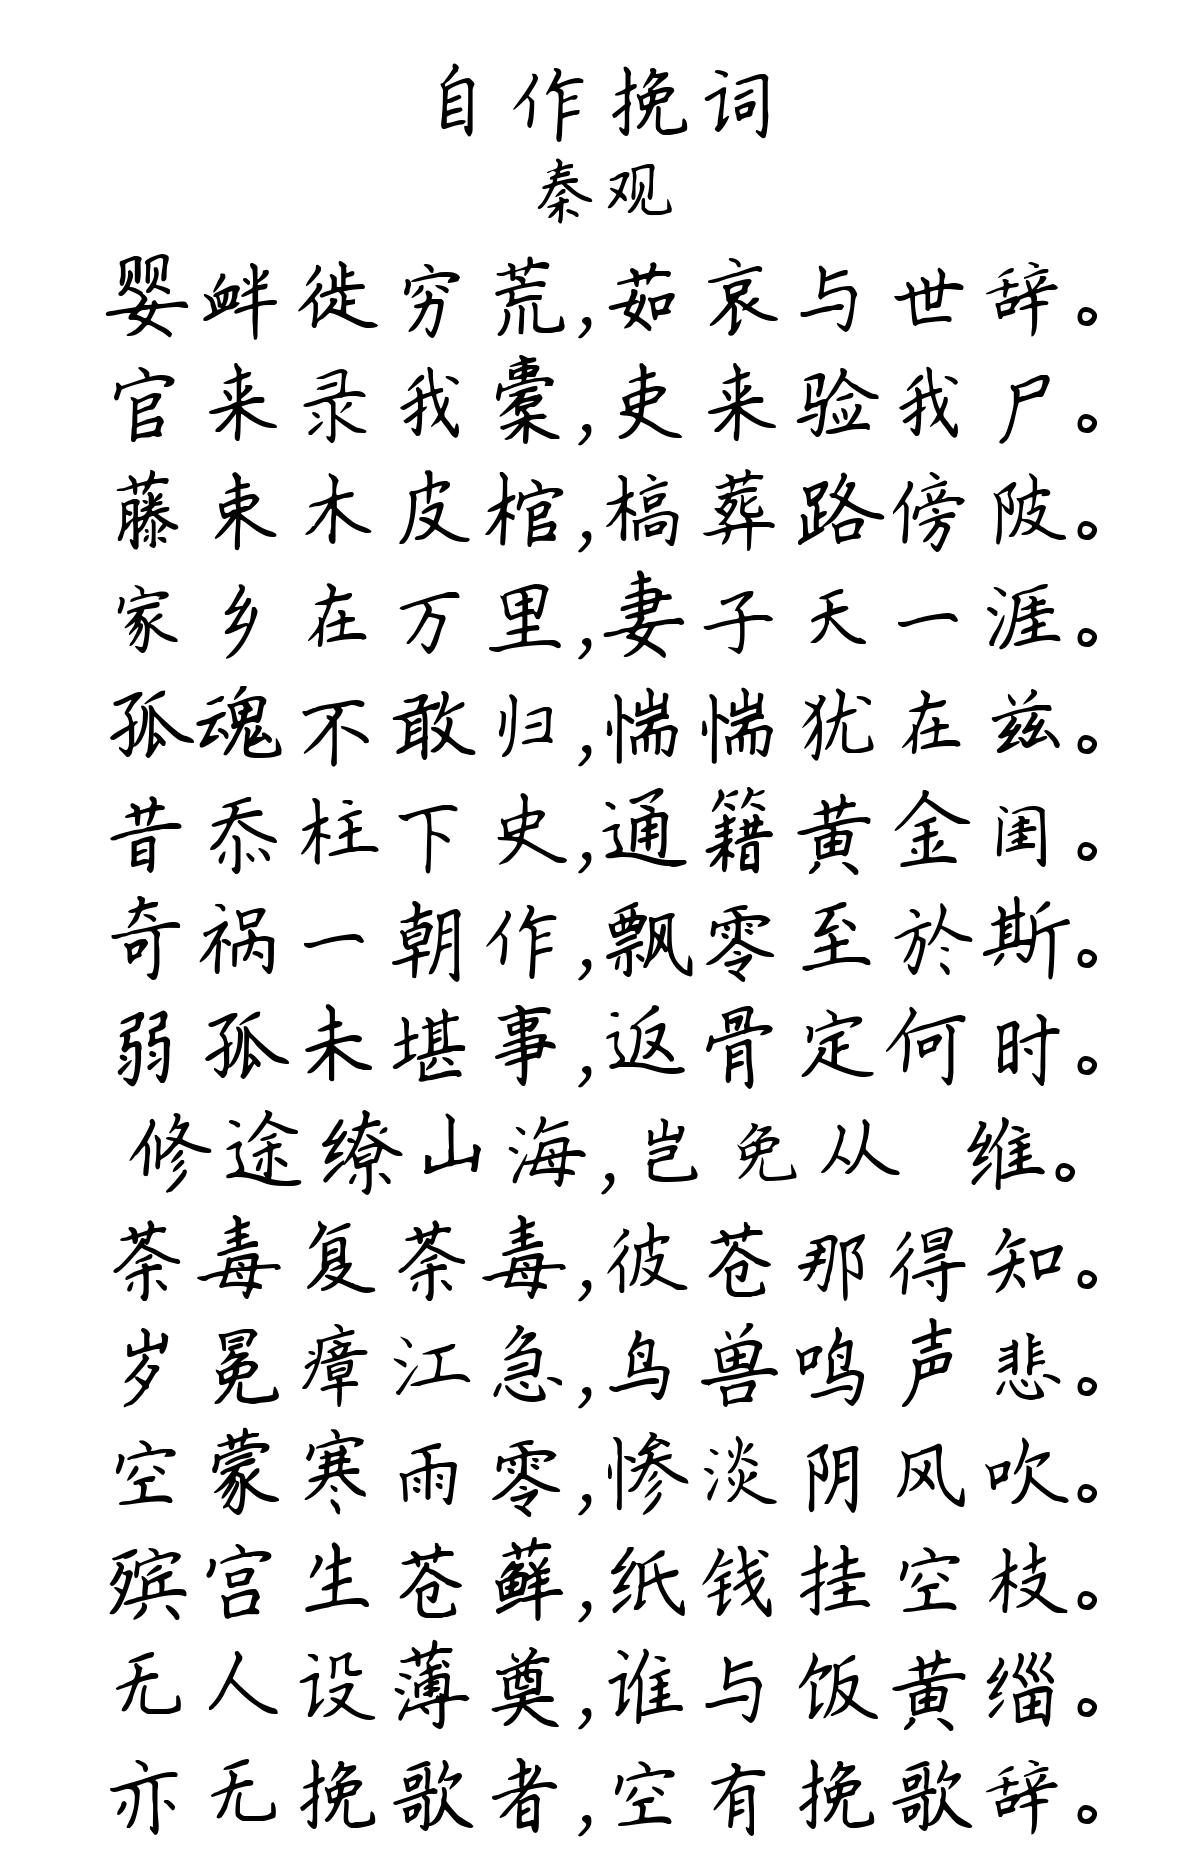 自作挽词
秦观
婴衅徙穷荒,茹哀与世辞。
官来录我橐,吏来验我尸。
藤束木皮棺,槁葬路傍陂。
家乡在万里,妻子天一涯。
孤魂不敢归,惴惴犹在兹。
昔忝柱下史,通籍黄金闺。
奇祸一朝作,飘零至於斯。
弱孤未堪事,返骨定何时。
修途缭山海,岂免从 维。
荼毒复荼毒,彼苍那得知。
岁冕瘴江急,鸟兽鸣声悲。
空蒙寒雨零,惨淡阴风吹。
殡宫生苍藓,纸钱挂空枝。
无人设薄奠,谁与饭黄缁。
亦无挽歌者,空有挽歌辞。